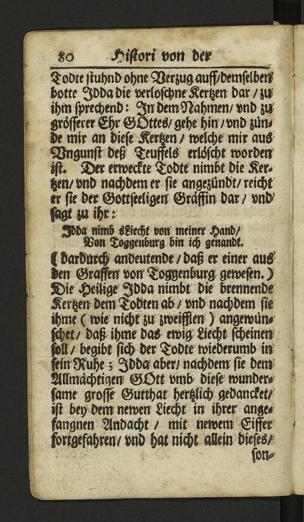 80 Histori von der
Todte stuhnd ohne Verzug auff/ demselben
botte Idda die verloschne Kertzen dar / zu
ihm sprechend: In dem Nahmen/ vnd zu
grösserer Ehr GOttes/ gehe hin/ vnd zün-
de mir an diese Kertzen / welche mir aus
Vngunst deß Teuffels erlöscht worden
ist. Der erweckte Todte nimbt die Ker-
tzen/ vnd nachdem er sie angezündt/ reicht
er sie der Gottseeligen Gräffin dar/ vnd
sagt zu ihr:
Idda nimb sLiecht von meiner Hand/
Von Toggenburg bin ich genandt.
(dardurch andeutende/ daß er einer aus
den Graffen von Toggenburg gewesen.)
Die Heilige Idda nimbt die brennende
Kertzen dem Todten ab/ vnd nachdem sie
ihme (wie nicht zu zweifflen) angewün-
schet/ daß ihme das ewig Liecht scheinen
soll/ begibt sich der Todte wiederumb in
sein Ruhe; Idda aber/ nachdem sie dem
Allmächtigen GOtt vmb diese wunder-
same grosse Gutthat hertzlich gedancket/
ist bey dem newen Liecht in ihrer ange-
fangnen Andacht / mit newem Eiffer
fortgefahren/ vnd hat nicht allein dieses/
son-